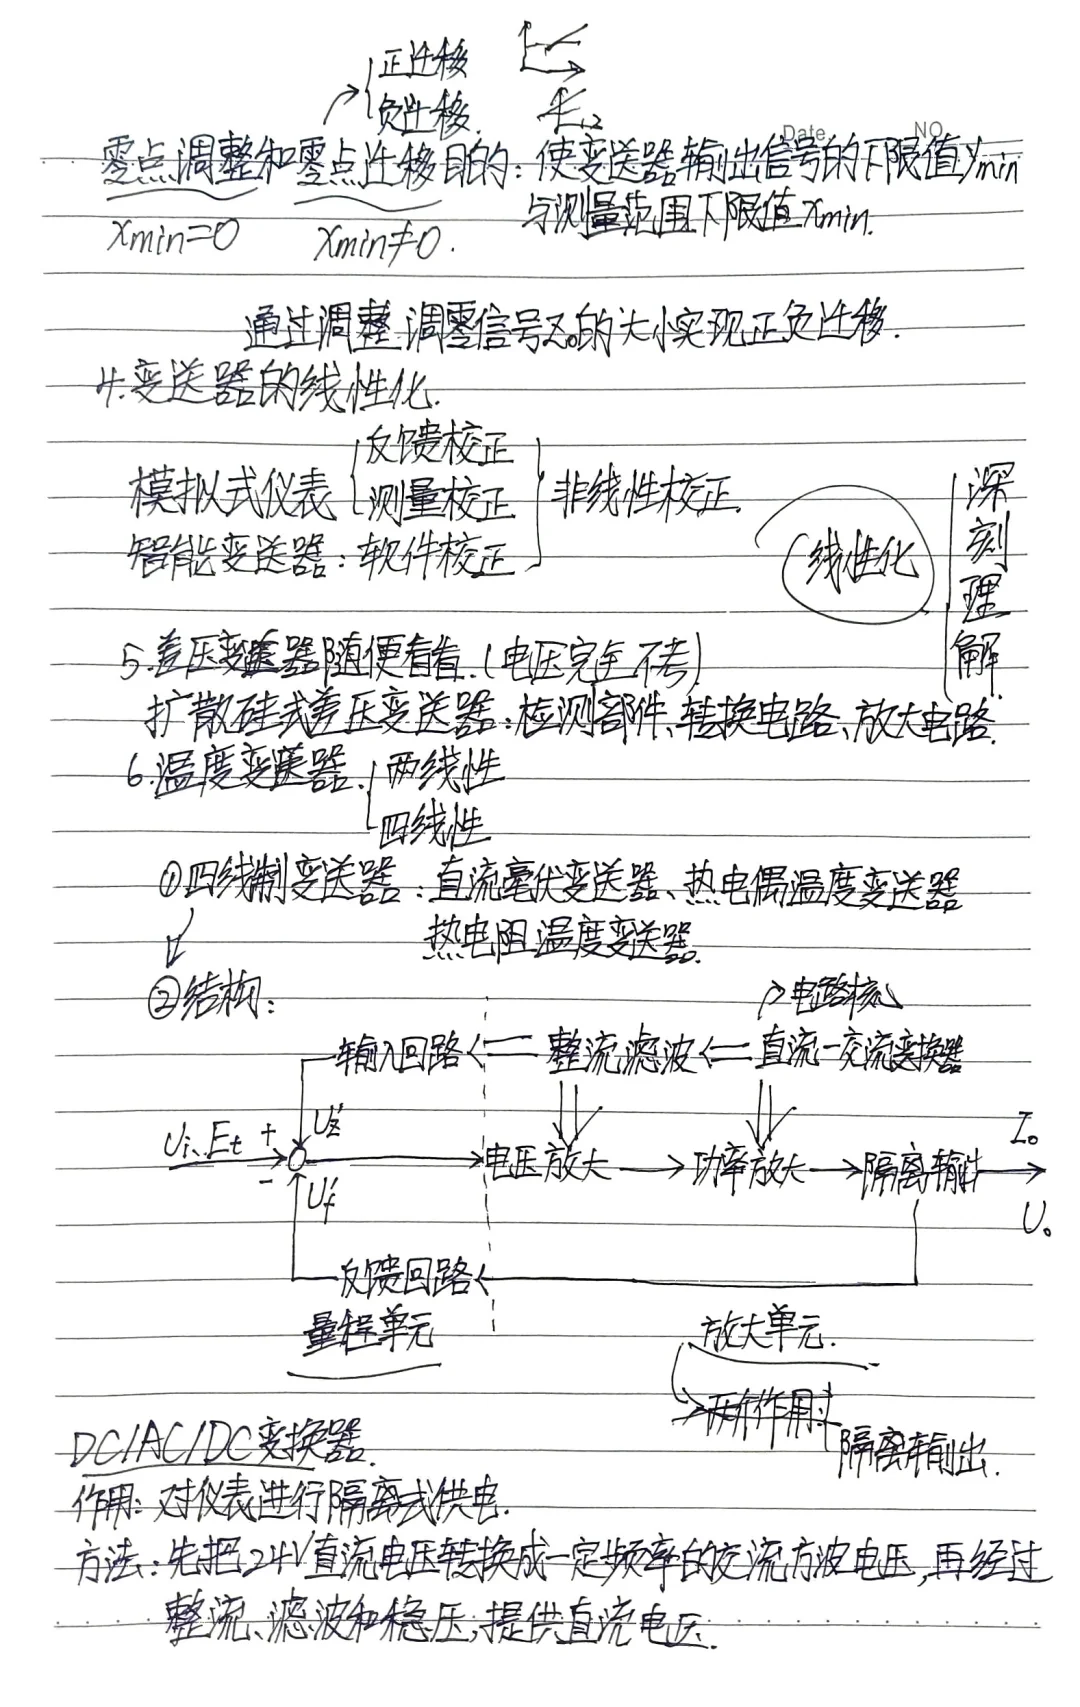 正迁移
负迁移.
Date NO
零点调整和零点迁移目的:使变送器输出信号的下限值ymin
与测量范围下限值xmin.
xmin=0 xmin≠0.
通过调整调零信号Z₀的大小实现正负迁移.
4.变送器的线性化.
反馈校正
模拟式仪表 测量校正 非线性校正.
智能变送器:软件校正
线性化
深刻理解.
5.差压变送器随便看看.(电压完全不考)
扩散硅式差压变送器:检测部件、转换电路、放大电路.
6.温度变送器. 两线性
四线性
①四线制变送器:直流毫伏变送器、热电偶温度变送器
热电阻温度变送器.
②结构:
电路核心
输入回路 整流滤波 直流-交流变换器
Uz'
Ui、Et + - 电压放大 功率放大 隔离输出 I₀
Uf' U₀
反馈回路
量程单元 放大单元.
两个作用
隔离输出.
DC/AC/DC变换器.
作用:对仪表进行隔离式供电.
方法:先把24V直流电压转换成一定频率的交流方波电压,再经过
整流、滤波和稳压,提供直流电压.